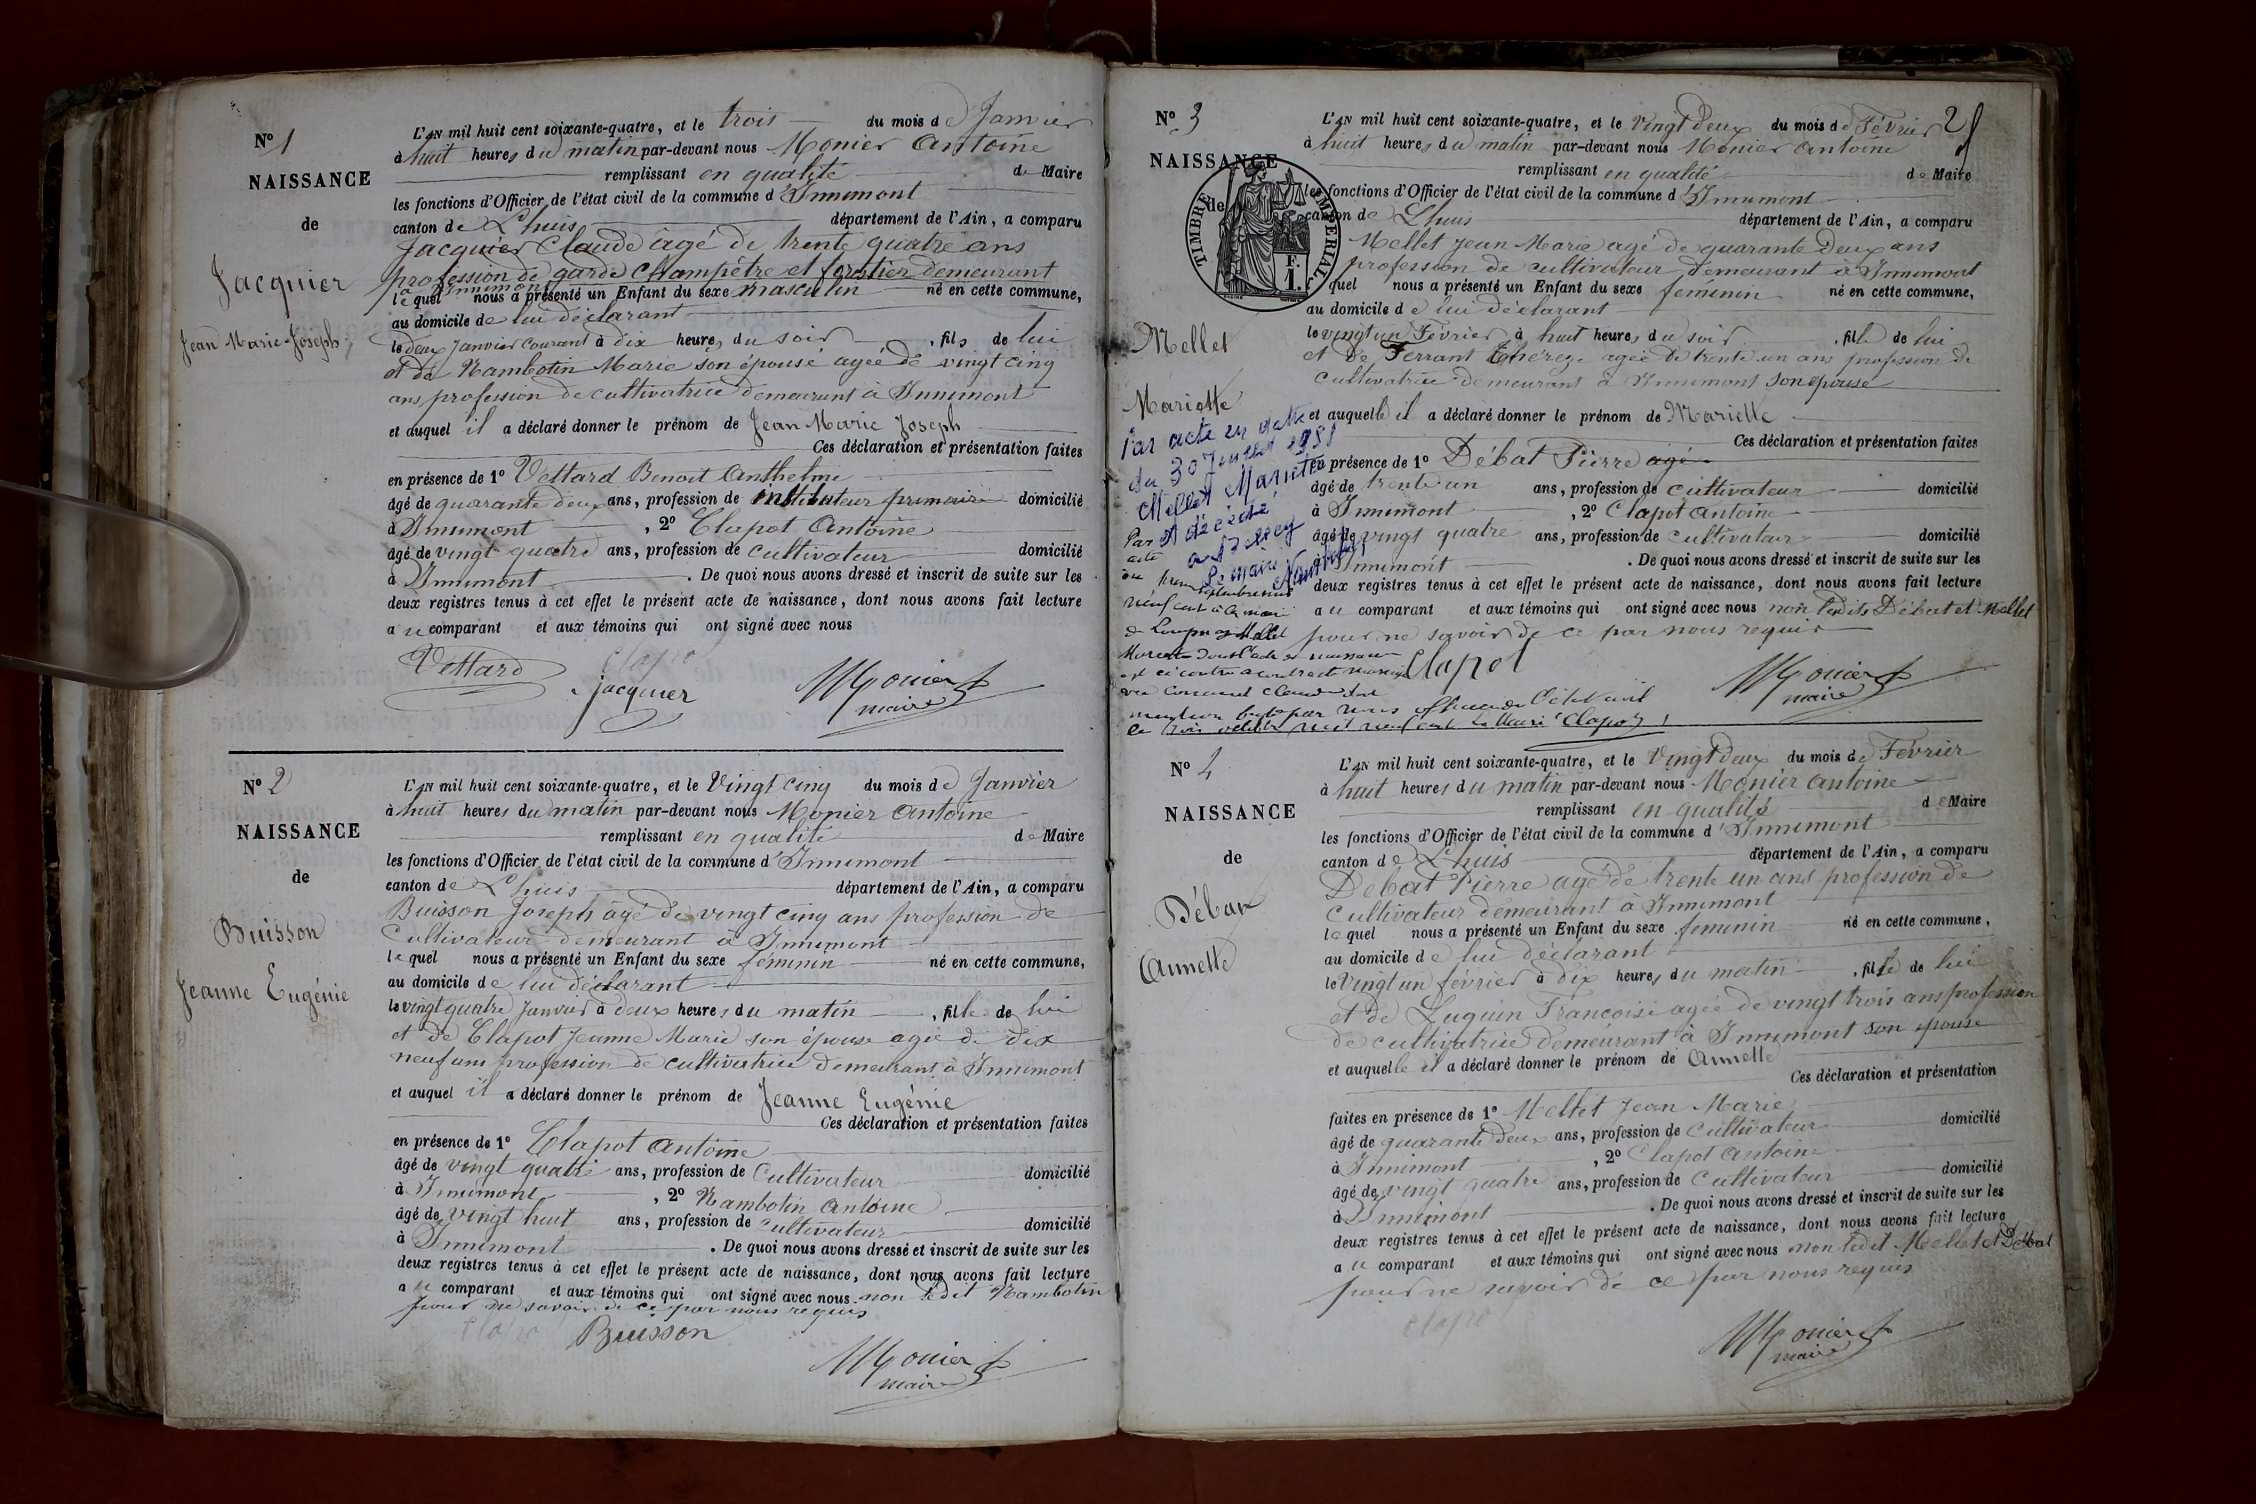 N° 1
NAISSANCE
de
Jacquier
Jean Marie Joseph
L'AN mil huit cent soixante-quatre, et le trois du mois de Janvier
à huit heures du matin par-devant nous Monier Antoine
remplissant en qualité de Maire
les fonctions d'Officier de l'état civil de la commune d'Innimont
canton de Lhuis département de l'Ain, a comparu
Jacquier Claude âgé de trente quatre ans
profession de garde champêtre et forestier demeurant
à Innimont
lequel nous a présenté un Enfant du sexe masculin né en cette commune,
au domicile de lui déclarant
le deux Janvier courant à dix heures du soir, fils de lui
et de Nambotin Marie son épouse agée de vingt cinq
ans, profession de cultivatrice demeurant à Innimont
et auquel il a déclaré donner le prénom de Jean Marie Joseph
Ces déclaration et présentation faites
en présence de 1° Vettard Benoit Anthelme
âgé de quarante deux ans, profession de instituteur primaire domicilié
à Innimont, 2° Clapot Antoine
âgé de vingt quatre ans, profession de cultivateur domicilié
à Innimont. De quoi nous avons dressé et inscrit de suite sur les
deux registres tenus à cet effet le présent acte de naissance, dont nous avons fait lecture
au comparant et aux témoins qui ont signé avec nous
Vettard Clapo Monier
jacquier maire
N° 2
NAISSANCE
de
Buisson
Jeanne Eugénie
L'AN mil huit cent soixante-quatre, et le Vingt cinq du mois de Janvier
à huit heures du matin par-devant nous Monier Antoine
remplissant en qualité de Maire
les fonctions d'Officier de l'état civil de la commune d'Innimont
canton de Lhuis département de l'Ain, a comparu
Buisson Joseph âgé de vingt cinq ans profession de
Cultivateur demeurant à Innimont
lequel nous a présenté un Enfant du sexe féminin né en cette commune,
au domicile de lui déclarant
le vingt quatre Janvier à deux heures du matin, fille de lui
et de Clapot Jeanne Marie son épouse agée de dix
neuf ans profession de cultivatrice demeurant à Innimont
et auquel il a déclaré donner le prénom de Jeanne Eugénie
Ces déclaration et présentation faites
en présence de 1° Clapot Antoine
âgé de vingt quatre ans, profession de Cultivateur domicilié
à Innimont, 2° Nambotin Antoine
âgé de vingt huit ans, profession de cultivateur domicilié
à Innimont. De quoi nous avons dressé et inscrit de suite sur les
deux registres tenus à cet effet le présent acte de naissance, dont nous avons fait lecture
au comparant et aux témoins qui ont signé avec nous non ledit Nambotin
pour ne savoir de ce par nous requis
Clapo Buisson
Monier
maire
N° 3
NAISSANCE
de
TIMBRE IMPERIAL
F.
1.
Mellet
Mariette
Par acte en date
du 30 Juillet 1951
Mellet Mariette
est décédé
à Belley
Le maire
Par
acte
septembre mil
neuf cent
est ci contre a contracté mariage
ce trois octobre mil neuf cent Le Maire Clapot
L'AN mil huit cent soixante-quatre, et le Vingt Deux du mois de Février 2
à huit heures du matin par-devant nous Monier Antoine
remplissant en qualité de Maire
les fonctions d'Officier de l'état civil de la commune d'Innimont
canton de Lhuis département de l'Ain, a comparu
Mellet Jean Marie agé de quarante Deux ans
profession de cultivateur, demeurant à Innimont
quel nous a présenté un Enfant du sexe féminin né en cette commune,
au domicile de lui déclarant
le vingt un Février à huit heures du soir, fille de lui
et de Ferrant Thérèze agée de trente un ans profession de
cultivatrice demeurant à Innimont son épouse
et auquelle il a déclaré donner le prénom de Mariette
Ces déclaration et présentation faites
en présence de 1° Débat Pierre agé
âgé de trente un ans, profession de cultivateur domicilié
à Innimont, 2° Clapot Antoine
âgé de vingt quatre ans, profession de cultivateur domicilié
à Innimont. De quoi nous avons dressé et inscrit de suite sur les
deux registres tenus à cet effet le présent acte de naissance, dont nous avons fait lecture
au comparant et aux témoins qui ont signé avec nous non lesdits Débat et Mellet
pour ne savoir de ce par nous requis
Clapot
Monier
maire
N° 4
NAISSANCE
de
Débat
Annette
L'AN mil huit cent soixante-quatre, et le Vingt Deux du mois de Février
à huit heures du matin par-devant nous Monier Antoine
remplissant en qualité de Maire
les fonctions d'Officier de l'état civil de la commune d'Innimont
canton de Lhuis département de l'Ain, a comparu
Débat Pierre agé de trente un ans profession de
cultivateur demeurant à Innimont
lequel nous a présenté un Enfant du sexe féminin né en cette commune,
au domicile de lui déclarant
le Vingt un février à dix heures du matin, fille de lui
et de Luquin Francoise agée de vingt trois ans profession
de cultivatrice demeurant à Innimont son épouse
et auquelle il a déclaré donner le prénom de Annette
Ces déclaration et présentation
faites en présence de 1° Mellet Jean Marie
âgé de quarante deux ans, profession de Cultivateur domicilié
à Innimont, 2° Clapot Antoine
âgé de vingt quatre ans, profession de Cultivateur domicilié
à Innimont. De quoi nous avons dressé et inscrit de suite sur les
deux registres tenus à cet effet le présent acte de naissance, dont nous avons fait lecture
au comparant et aux témoins qui ont signé avec nous non ledit Mellet et Débat
pour ne savoir de ce par nous requis
Clapo
Monier
maire